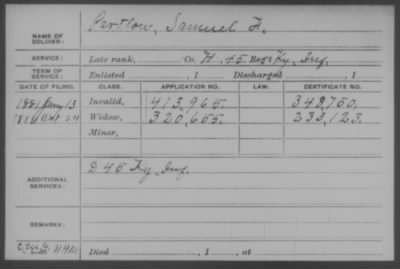 NAME OF SOLDIER: Partlow, Samuel F.
SERVICE: Late rank, Co. H. 45 Reg't Ky. Inf.
TERM OF SERVICE: Enlisted , 1 Discharged , 1
DATE OF FILING. CLASS. APPLICATION NO. LAW. CERTIFICATE NO.
1881 Jany 13 Invalid, 413,965. 342,750.
24 Widow, 320,655. 233,123.
Minor,
ADDITIONAL SERVICES: D 45 Ky. Inf.
REMARKS:
Died , 1 , at